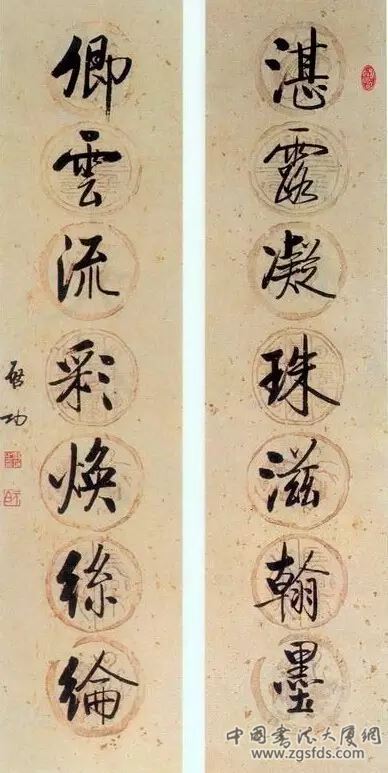 湛露凝珠滋翰墨
卿雲流彩煥絲綸
啟功
中國書法大廈網
www.zgsfds.com